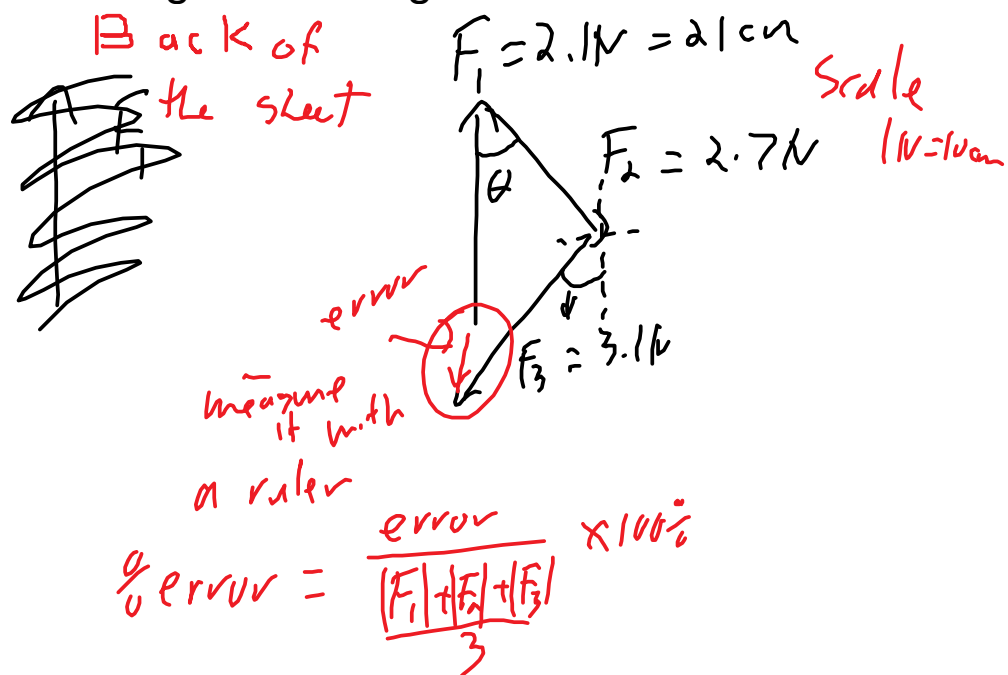 Back of
the sheet
F1 = 2.1N = 21cm
Scale
1N=10cm
F2 = 2.7N
θ
error
F3 = 3.1N
measure
it with
a ruler
% error = error / ((|F1|+|F2|+|F3|) / 3) ×100%